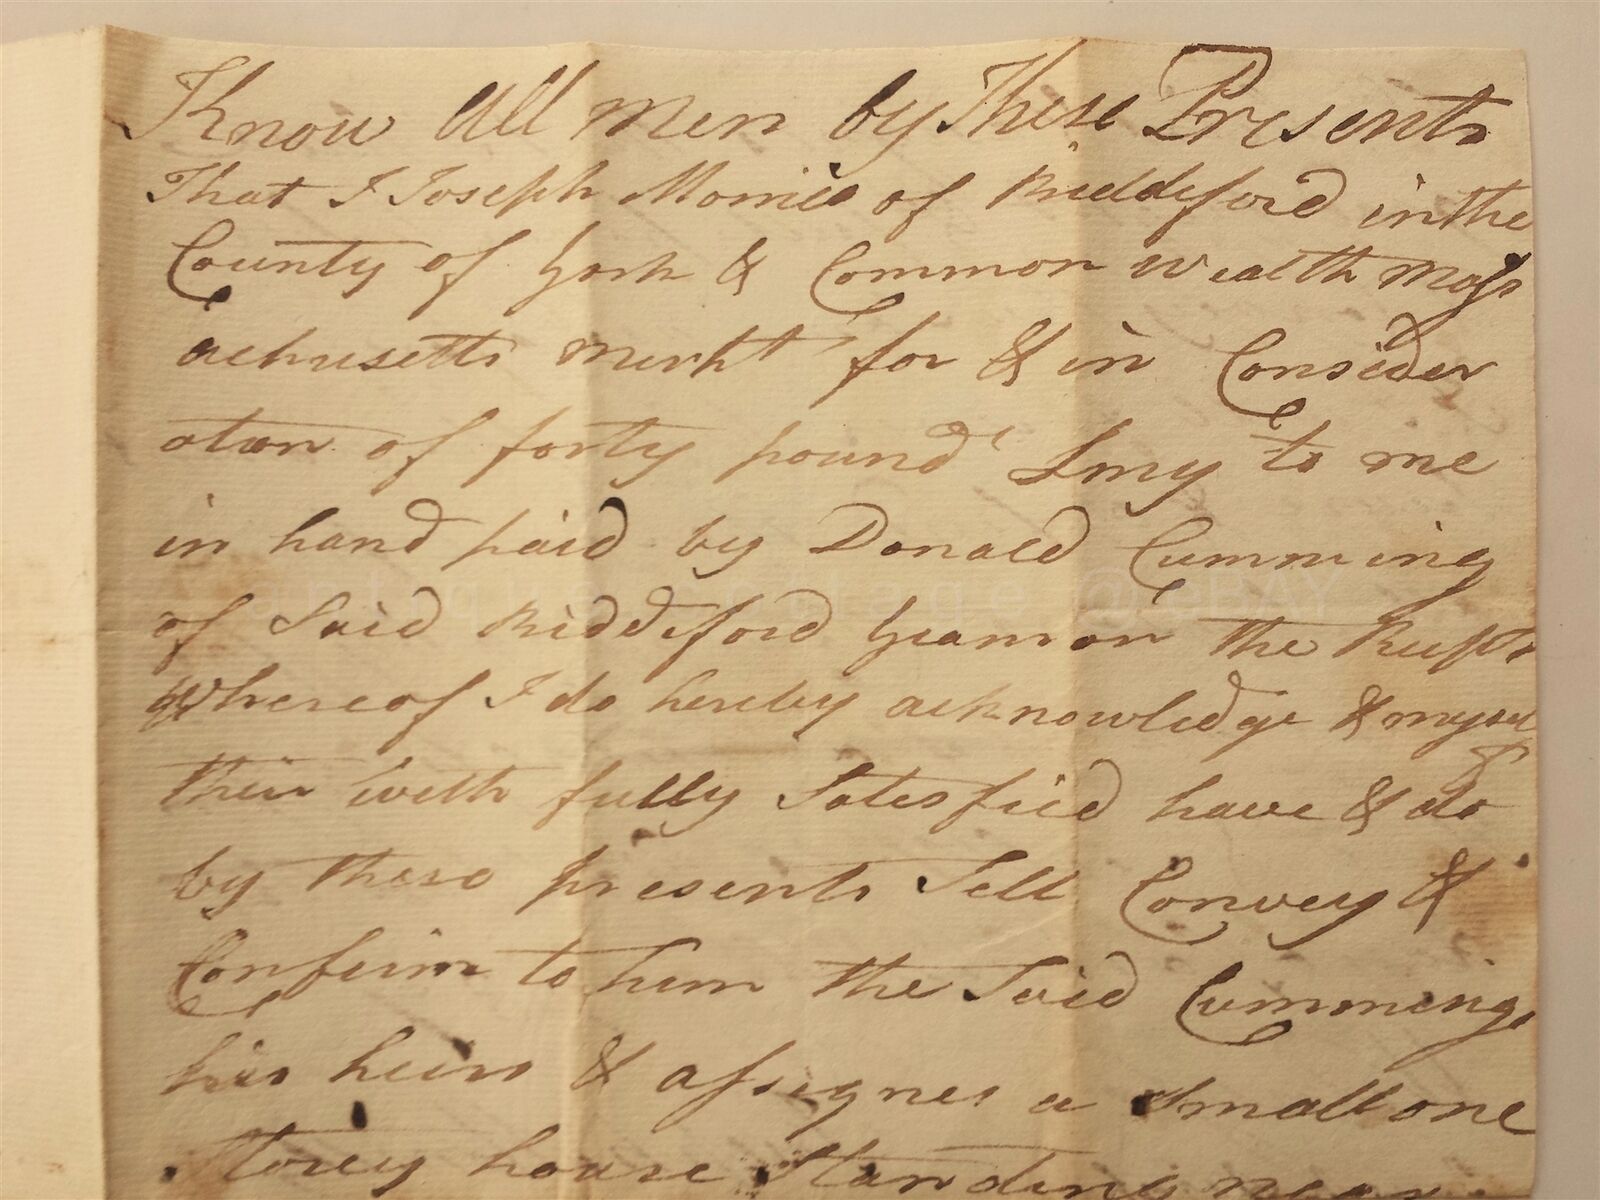 Know All men by These Presents
That I Joseph Morriel of Biddeford in the
County of York & Common wealth Mass
achusetts merht for & in Consider
ation of forty pound Lmy to me
in hand paid by Donald Cumming
of Said Biddeford Yeamon the Rect
Whereof I do hereby acknowledge & myself
their with fully Satesfied have & do
by these presents Sell Convey &
Confirm to him the Said Cummings
his heirs & assignes a Small one
Storey house Standing near